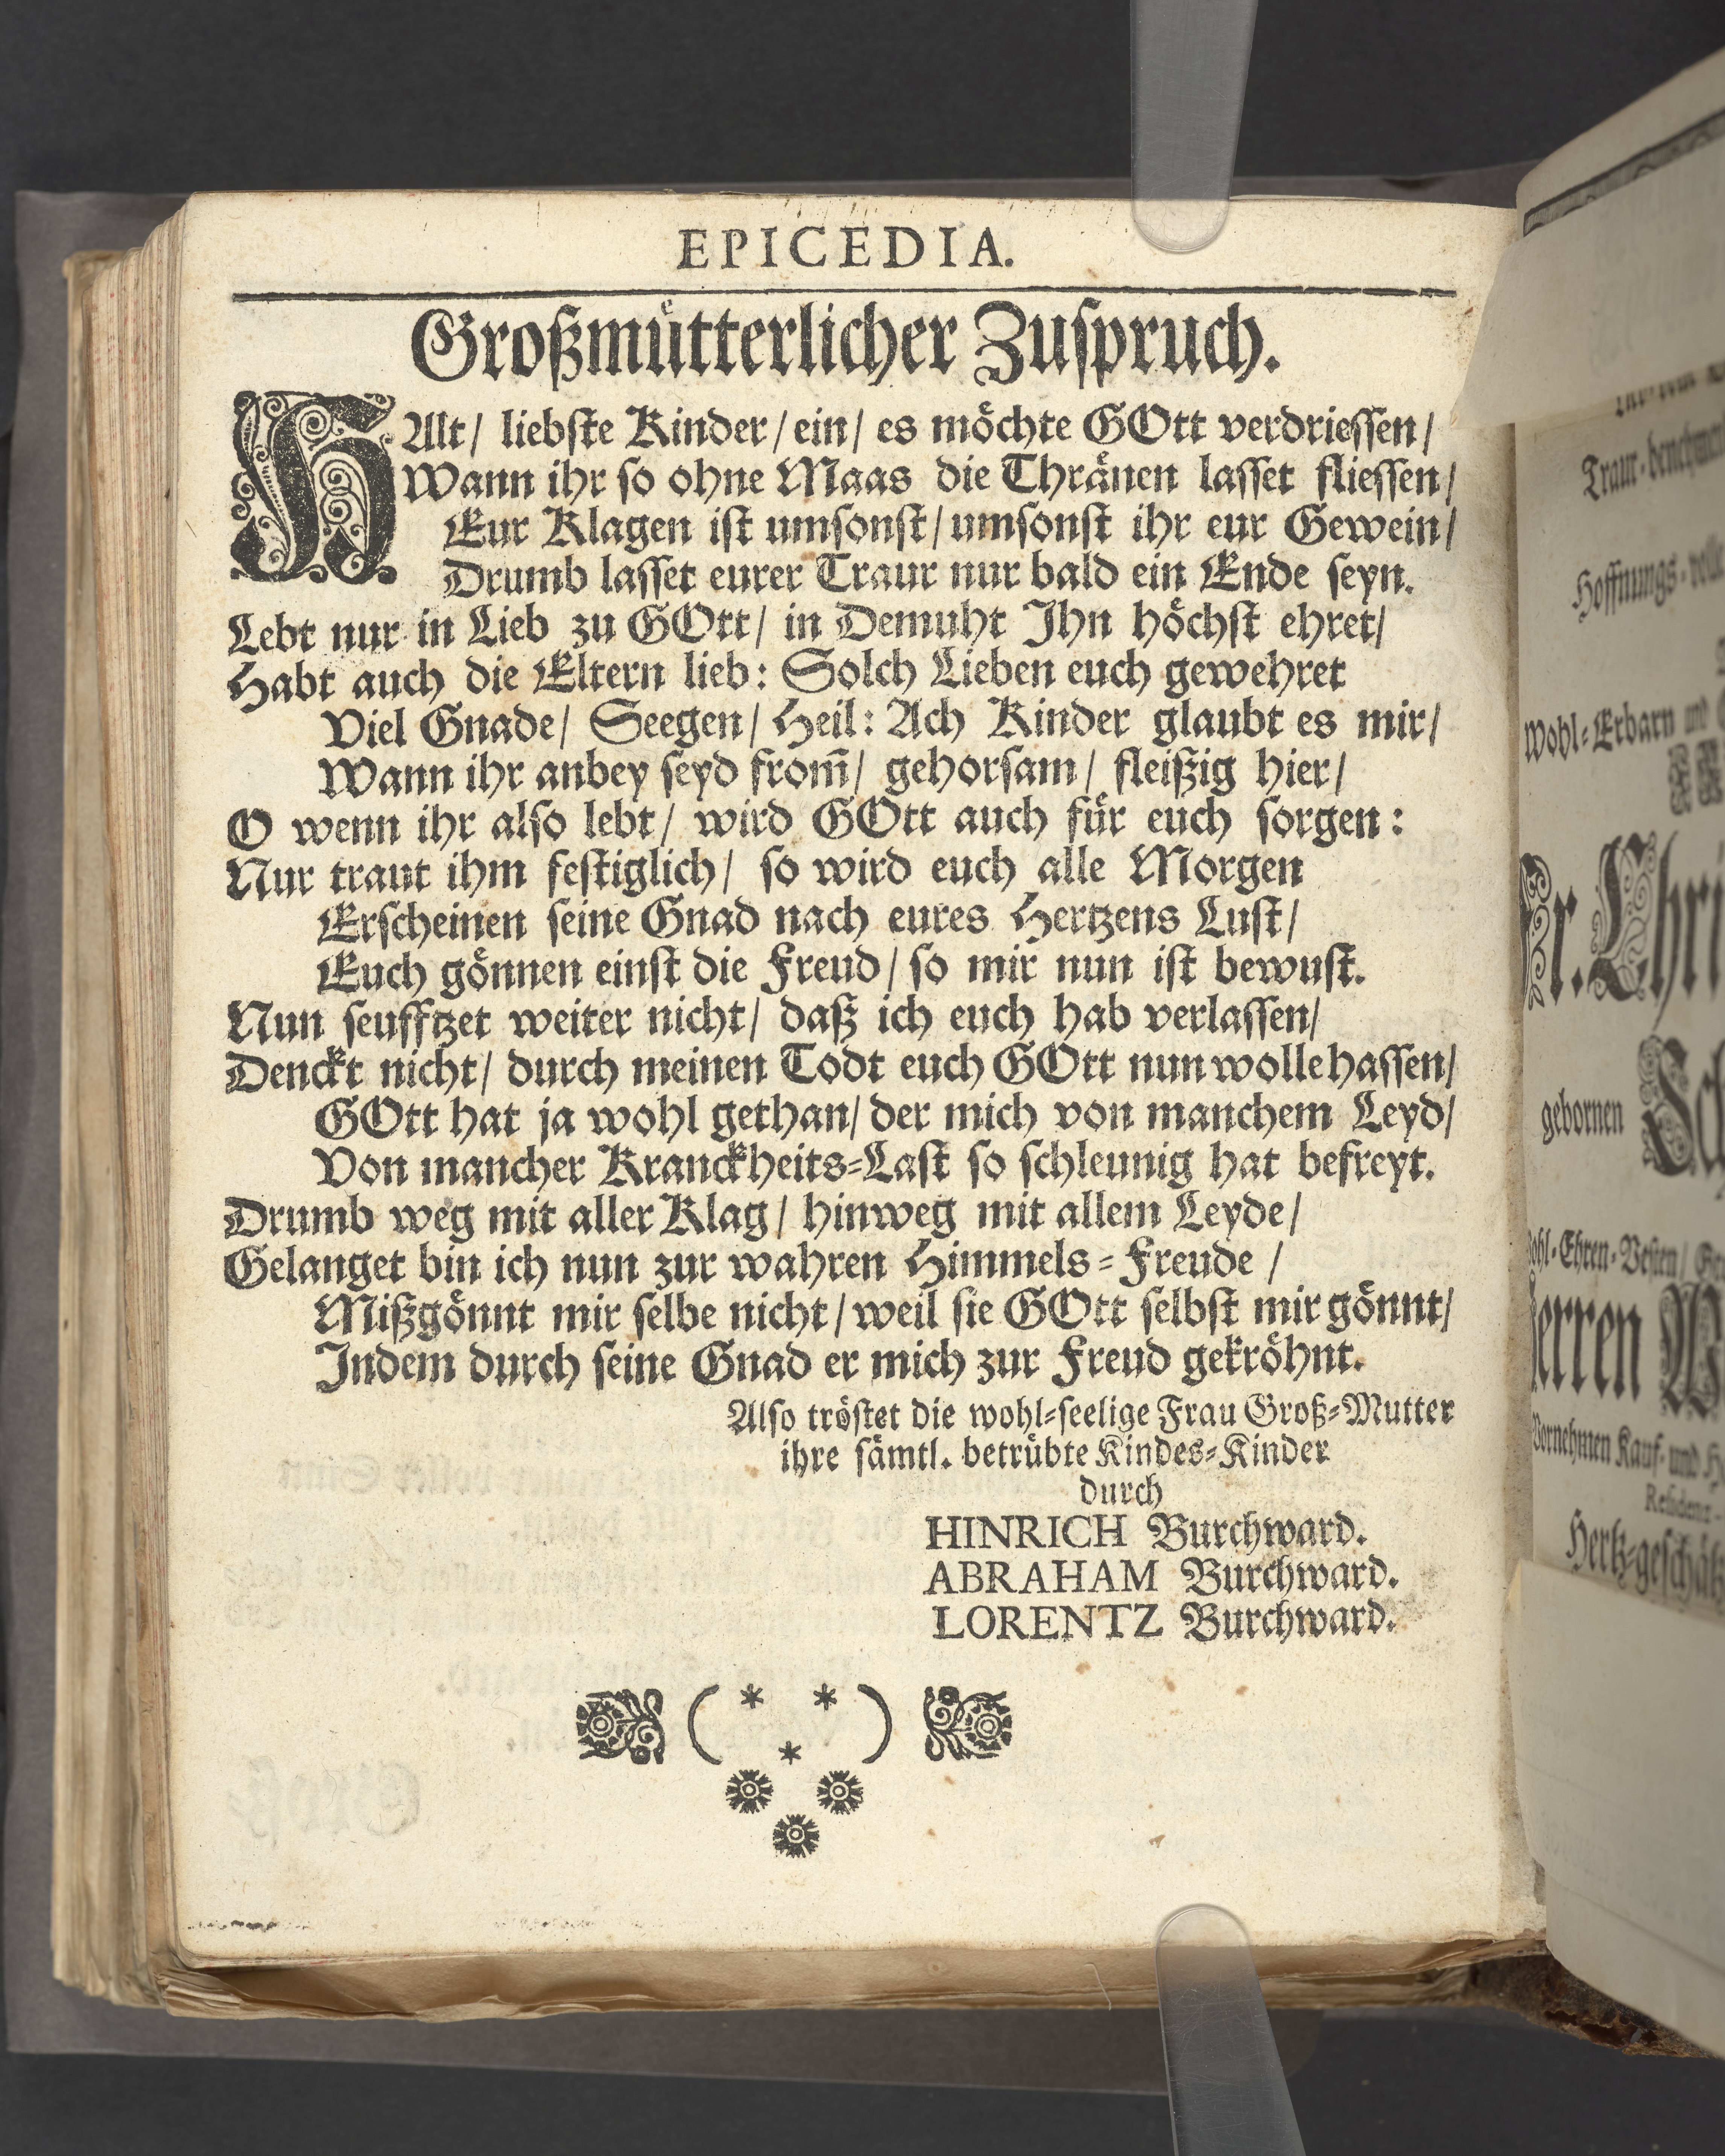 EPICEDIA.
Großmuͤtterlicher Zuſpruch.
HAlt/ liebſte Kinder/ ein/ es moͤchte GOtt verdrieſſen/
Wann ihr ſo ohne Maas die Thraͤnen laſſet flieſſen/
Eur Klagen iſt umſonſt/ umſonſt ihr eur Gewein/
Drumb laſſet eurer Traur nur bald ein Ende ſeyn.
Lebt nur in Lieb zu GOtt/ in Demuht Ihn hoͤchſt ehret/
Habt auch die Eltern lieb: Solch Lieben euch gewehret
Viel Gnade/ Seegen/ Heil: Ach Kinder glaubt es mir/
Wann ihr anbey ſeyd from̃/ gehorſam/ fleißig hier/
O wenn ihr alſo lebt/ wird GOtt auch fuͤr euch ſorgen:
Nur traut ihm feſtiglich/ ſo wird euch alle Morgen
Erſcheinen ſeine Gnad nach eures Hertzens Luſt/
Euch goͤnnen einſt die Freud/ ſo mir nun iſt bewuſt.
Nun ſeufftzet weiter nicht/ daß ich euch hab verlaſſen/
Denckt nicht/ durch meinen Todt euch GOtt nun wolle haſſen/
GOtt hat ja wohl gethan/ der mich von manchem Leyd/
Von mancher Kranckheits-Laſt ſo ſchleunig hat befreyt.
Drumb weg mit aller Klag/ hinweg mit allem Leyde/
Gelanget bin ich nun zur wahren Himmels-Freude/
Mißgoͤnnt mir ſelbe nicht/ weil ſie GOtt ſelbſt mir goͤnnt/
Indem durch ſeine Gnad er mich zur Freud gekroͤhnt.
Alſo troͤſtet die wohl-ſeelige Frau Groß-Mutter
ihre ſaͤmtl. betruͤbte Kindes-Kinder
durch
HINRICH Burchward.
ABRAHAM Burchward.
LORENTZ Burchward.
Wohl-Erbarn und
gebornen
Vornehmen Kauf- und